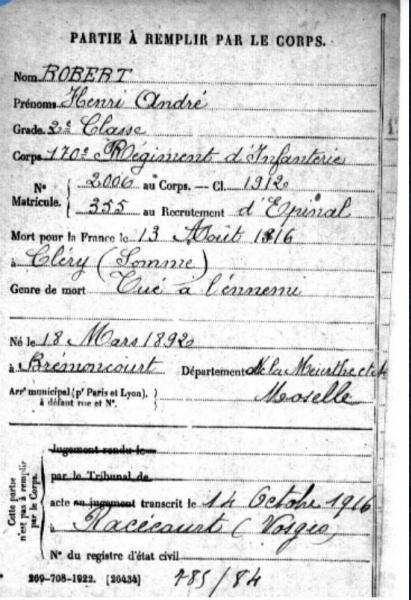 PARTIE À REMPLIR PAR LE CORPS.
Nom ROBERT
Prénoms Henri André
Grade 2e Classe
Corps 170e Régiment d'Infanterie
N° Matricule. { 2006 au Corps. — Cl. 1912
355 au Recrutement d'Epinal
Mort pour la France le 13 Août 1916
à Cléry (Somme)
Genre de mort Tué à l'énnemi
Né le 18 Mars 1892
à Brémoncourt Département de la Meurthe et
Moselle
Arrt municipal (pr Paris et Lyon),
à défaut rue et N°.
Cette partie n'est pas à remplir par le Corps.
Jugement rendu le
par le Tribunal de
acte ou jugement transcrit le 14 Octobre 1916
à Racécourt (Vosges)
N° du registre d'état civil
269-708-1922. [26434] 785/84